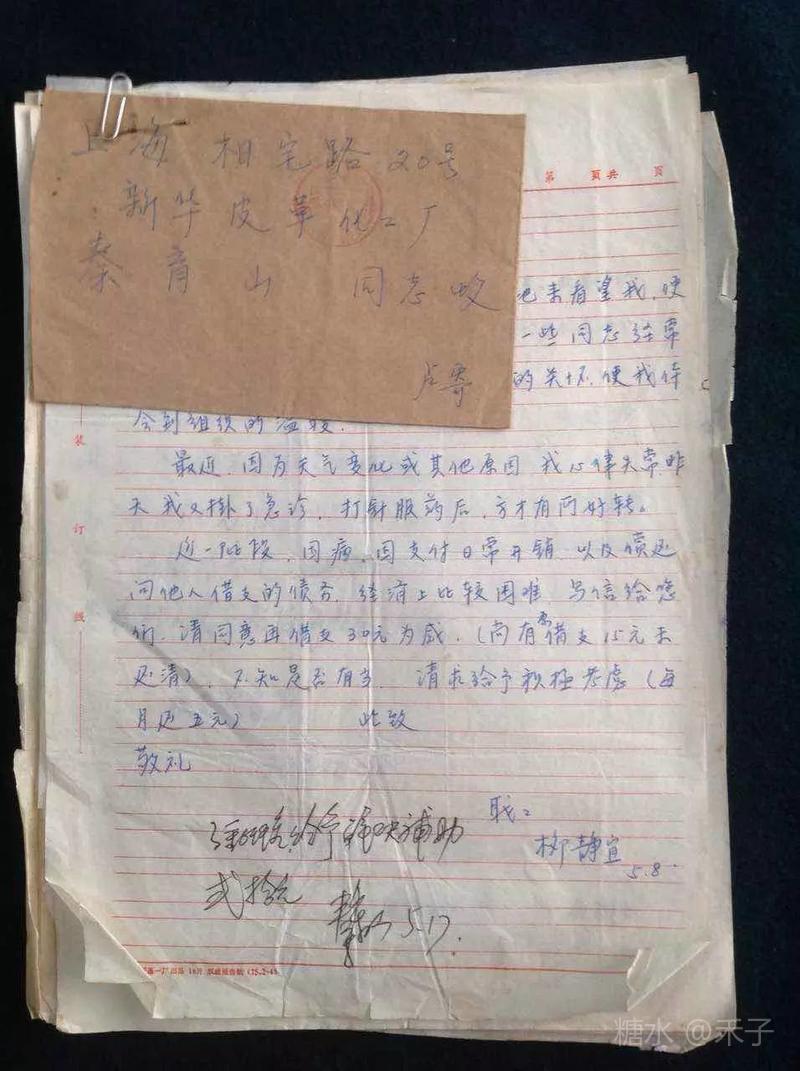 上海 相宅路 20号
新华皮革化工厂
秦育山 同志收
卢寄
第 页共 页
也来看望我,使
一些同志经常
的关怀,使我体
会到组织的温暖.
装
订
线
最近,因为天气变化或其他原因,我心律失常,昨
天我又掛了急诊,打针服药后,方才有所好转。
近一阶段,因病,因支付日常开销,以及偿还
问他人借支的债务,经济上比较困难,写信给您
们,请同意再借支30元为感.(尚有需借支15元未
还清),不知是否有当,请求给予积极考慮(每
月还五元) 此致
敬礼
职:
柳静宜
5.8.
给予解决補助
弍拾元
5.17.
糖水 @禾子